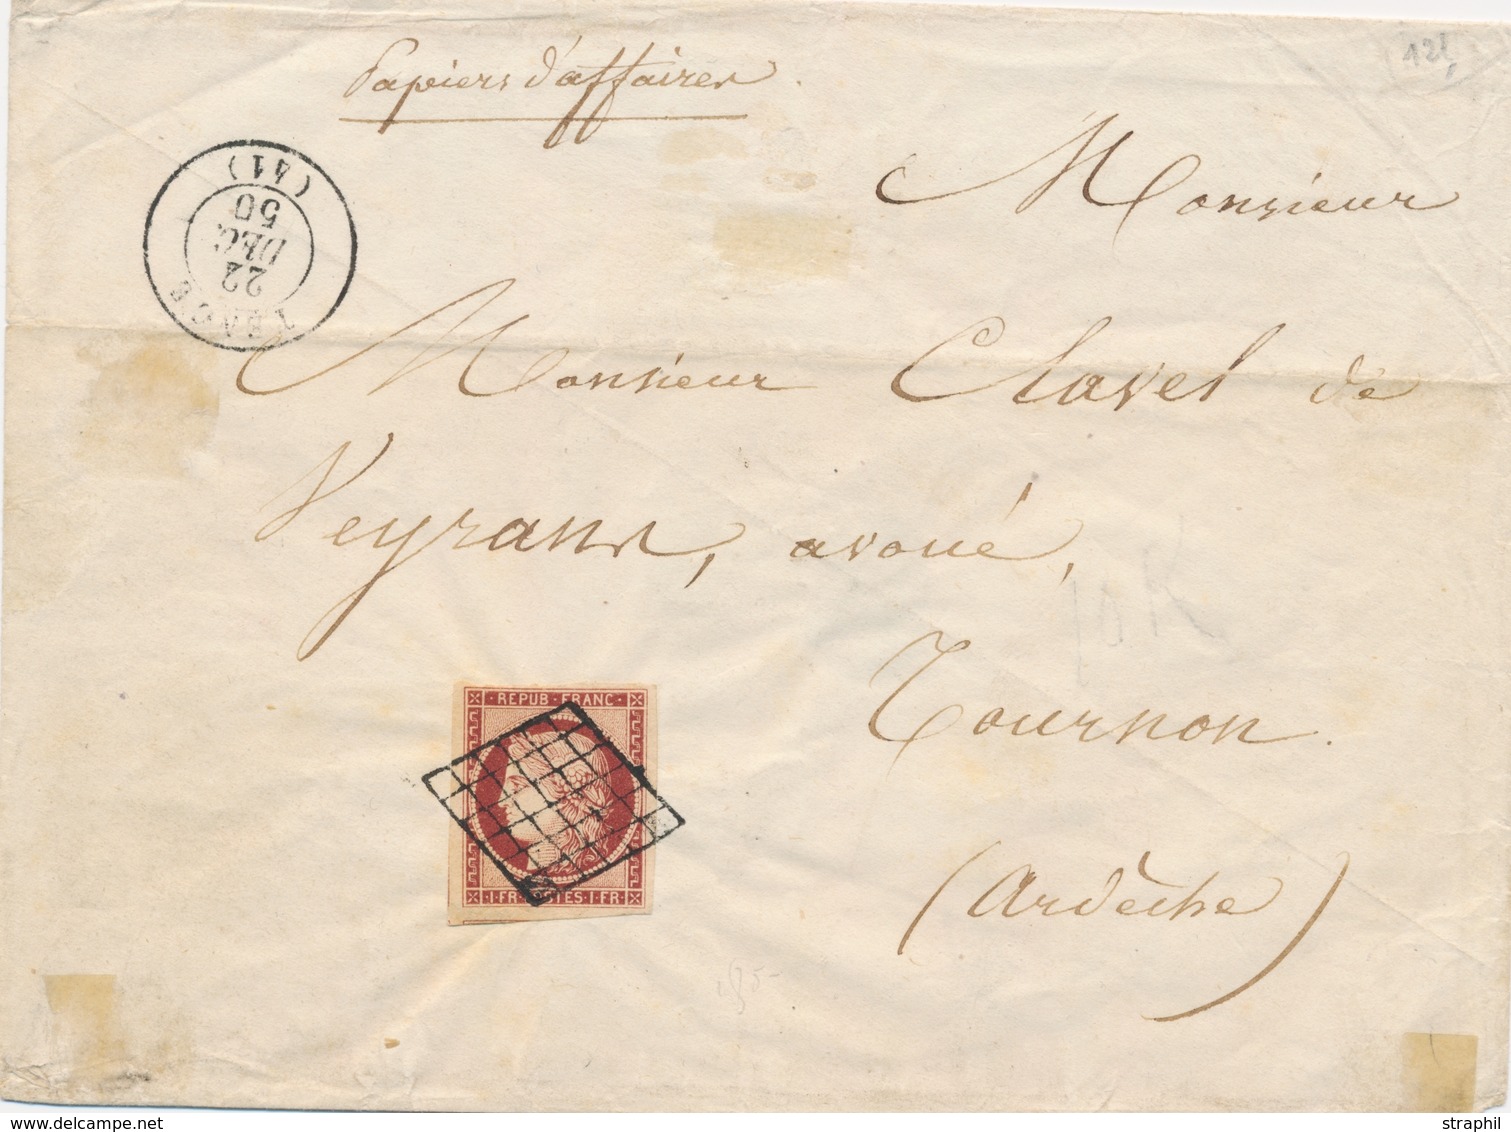 Papiers d'affaires
121
(41)
50
DEC.
22
Monsieur
Monsieur Clavel de
Veyrans, avoué,
Tournon.
(Ardèche)
REPUB·FRANC·
·1·FR·POSTES·1·FR·
www.delcampe.net
straphil